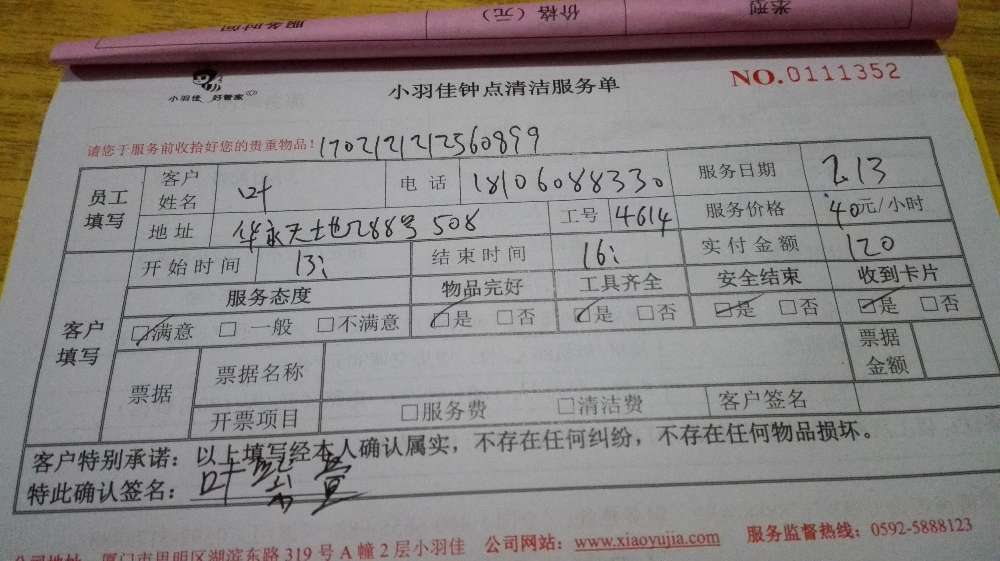 服务时间 价格(元) 类型
小羽佳 好管家
小羽佳钟点清洁服务单
NO.0111352
请您于服务前收拾好您的贵重物品!
员工填写 客户姓名 叶 电话 18106088330 服务日期 2.13
地址 508 工号 4614 服务价格 40元/小时
客户填写 开始时间 13: 结束时间 16: 实付金额 120
服务态度 物品完好 工具齐全 安全结束 收到卡片
☑满意 □一般 □不满意 ☑是 □否 ☑是 □否 ☑是 □否 ☑是 □否
票据 票据名称 票据金额
开票项目 □服务费 □清洁费 客户签名
客户特别承诺:以上填写经本人确认属实,不存在任何纠纷,不存在任何物品损坏。
特此确认签名:叶
公司地址 厦门市思明区湖滨东路319号A幢2层小羽佳 公司网站:www.xiaoyujia.com 服务监督热线:0592-5888123